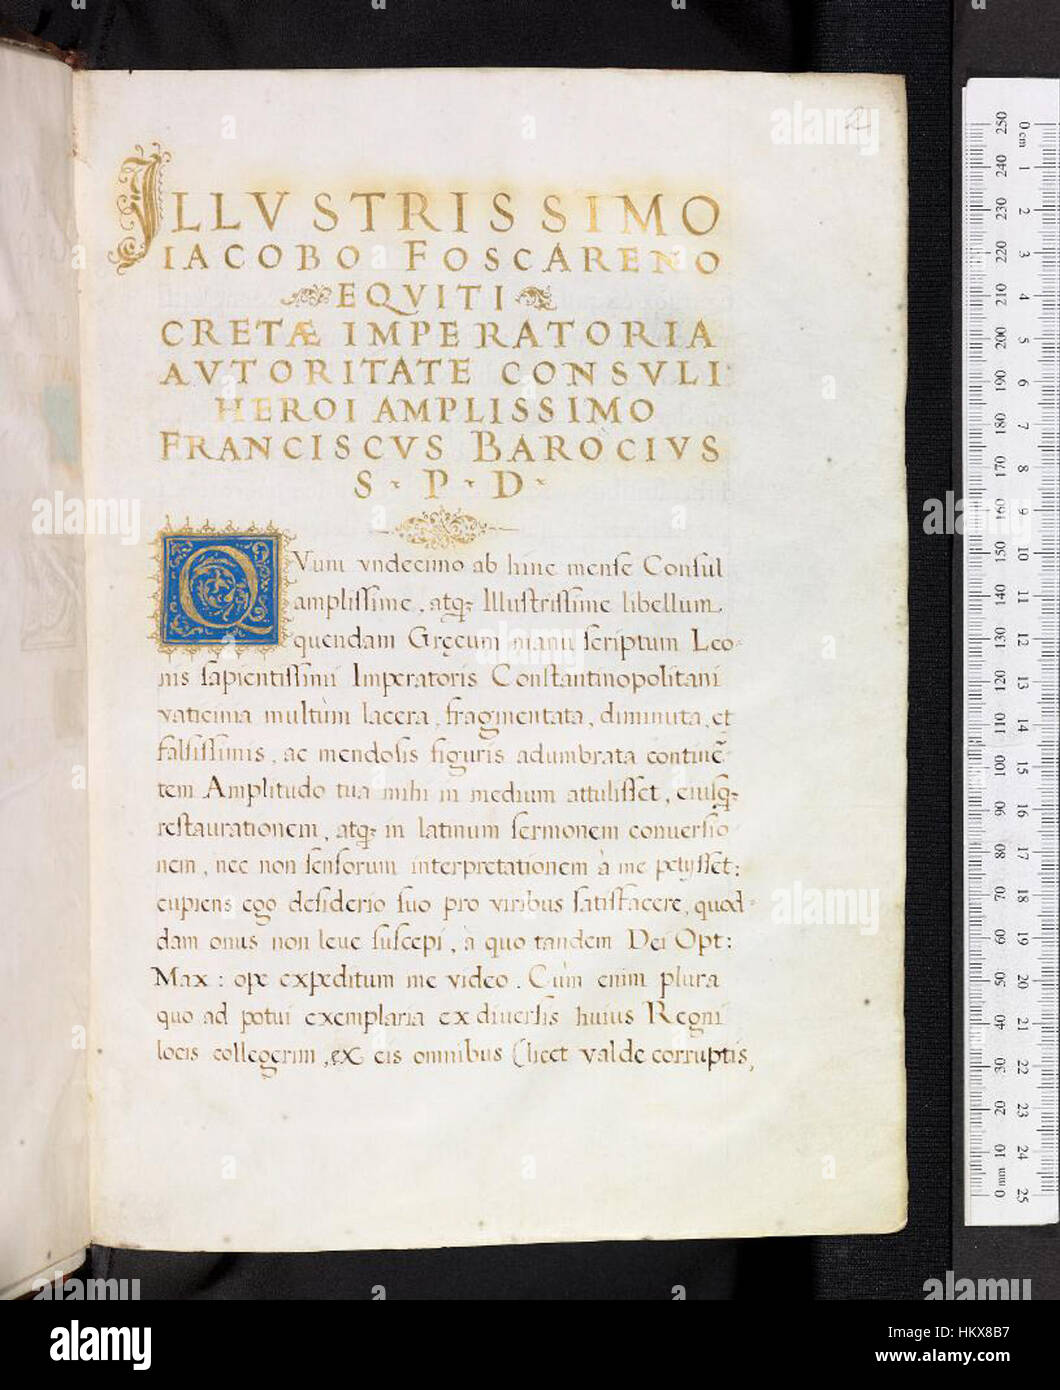 2
ILLVSTRISSIMO
IACOBO FOSCARENO
EQVITI
CRETÆ IMPERATORIA
AVTORITATE CONSVLI
HEROI AMPLISSIMO
FRANCISCVS BAROCIVS
S · P · D ·
QVum vndecimo ab hinc mense Consul
amplissime, atq; Illustrissime libellum
quendam Gręcum manu scriptum Leo-
nis sapientissimi Imperatoris Constantinopolitani
vaticinia multùm lacera, fragmentata, diminuta, et
falsissimis, ac mendosis figuris adumbrata continẽ-
tem Amplitudo tua mihi in medium attulisset, eiusq;
restaurationem, atq; in latinum sermonem conversio
nem, nec non sensorum interpretationem à me petijsset:
cupiens ego desiderio suo pro viribus satisfacere, quod-
dam onus non leue suscepi, à quo tandem Dei Opt:
Max: ope expeditum me video. Cùm enim plura
quo ad potui exemplaria ex diuersis huius Regni
locis collegerim, ex eis omnibus (licet valde corruptis,
0 cm 1 2 3 4 5 6 7 8 9 10 11 12 13 14 15 16 17 18 19 20 21 22 23 24 25
250 240 230 220 210 200 190 180 170 160 150 140 130 120 110 100 90 80 70 60 50 40 30 20 10 0 mm
alamy
alamy
Image ID: HKX8B7
www.alamy.com